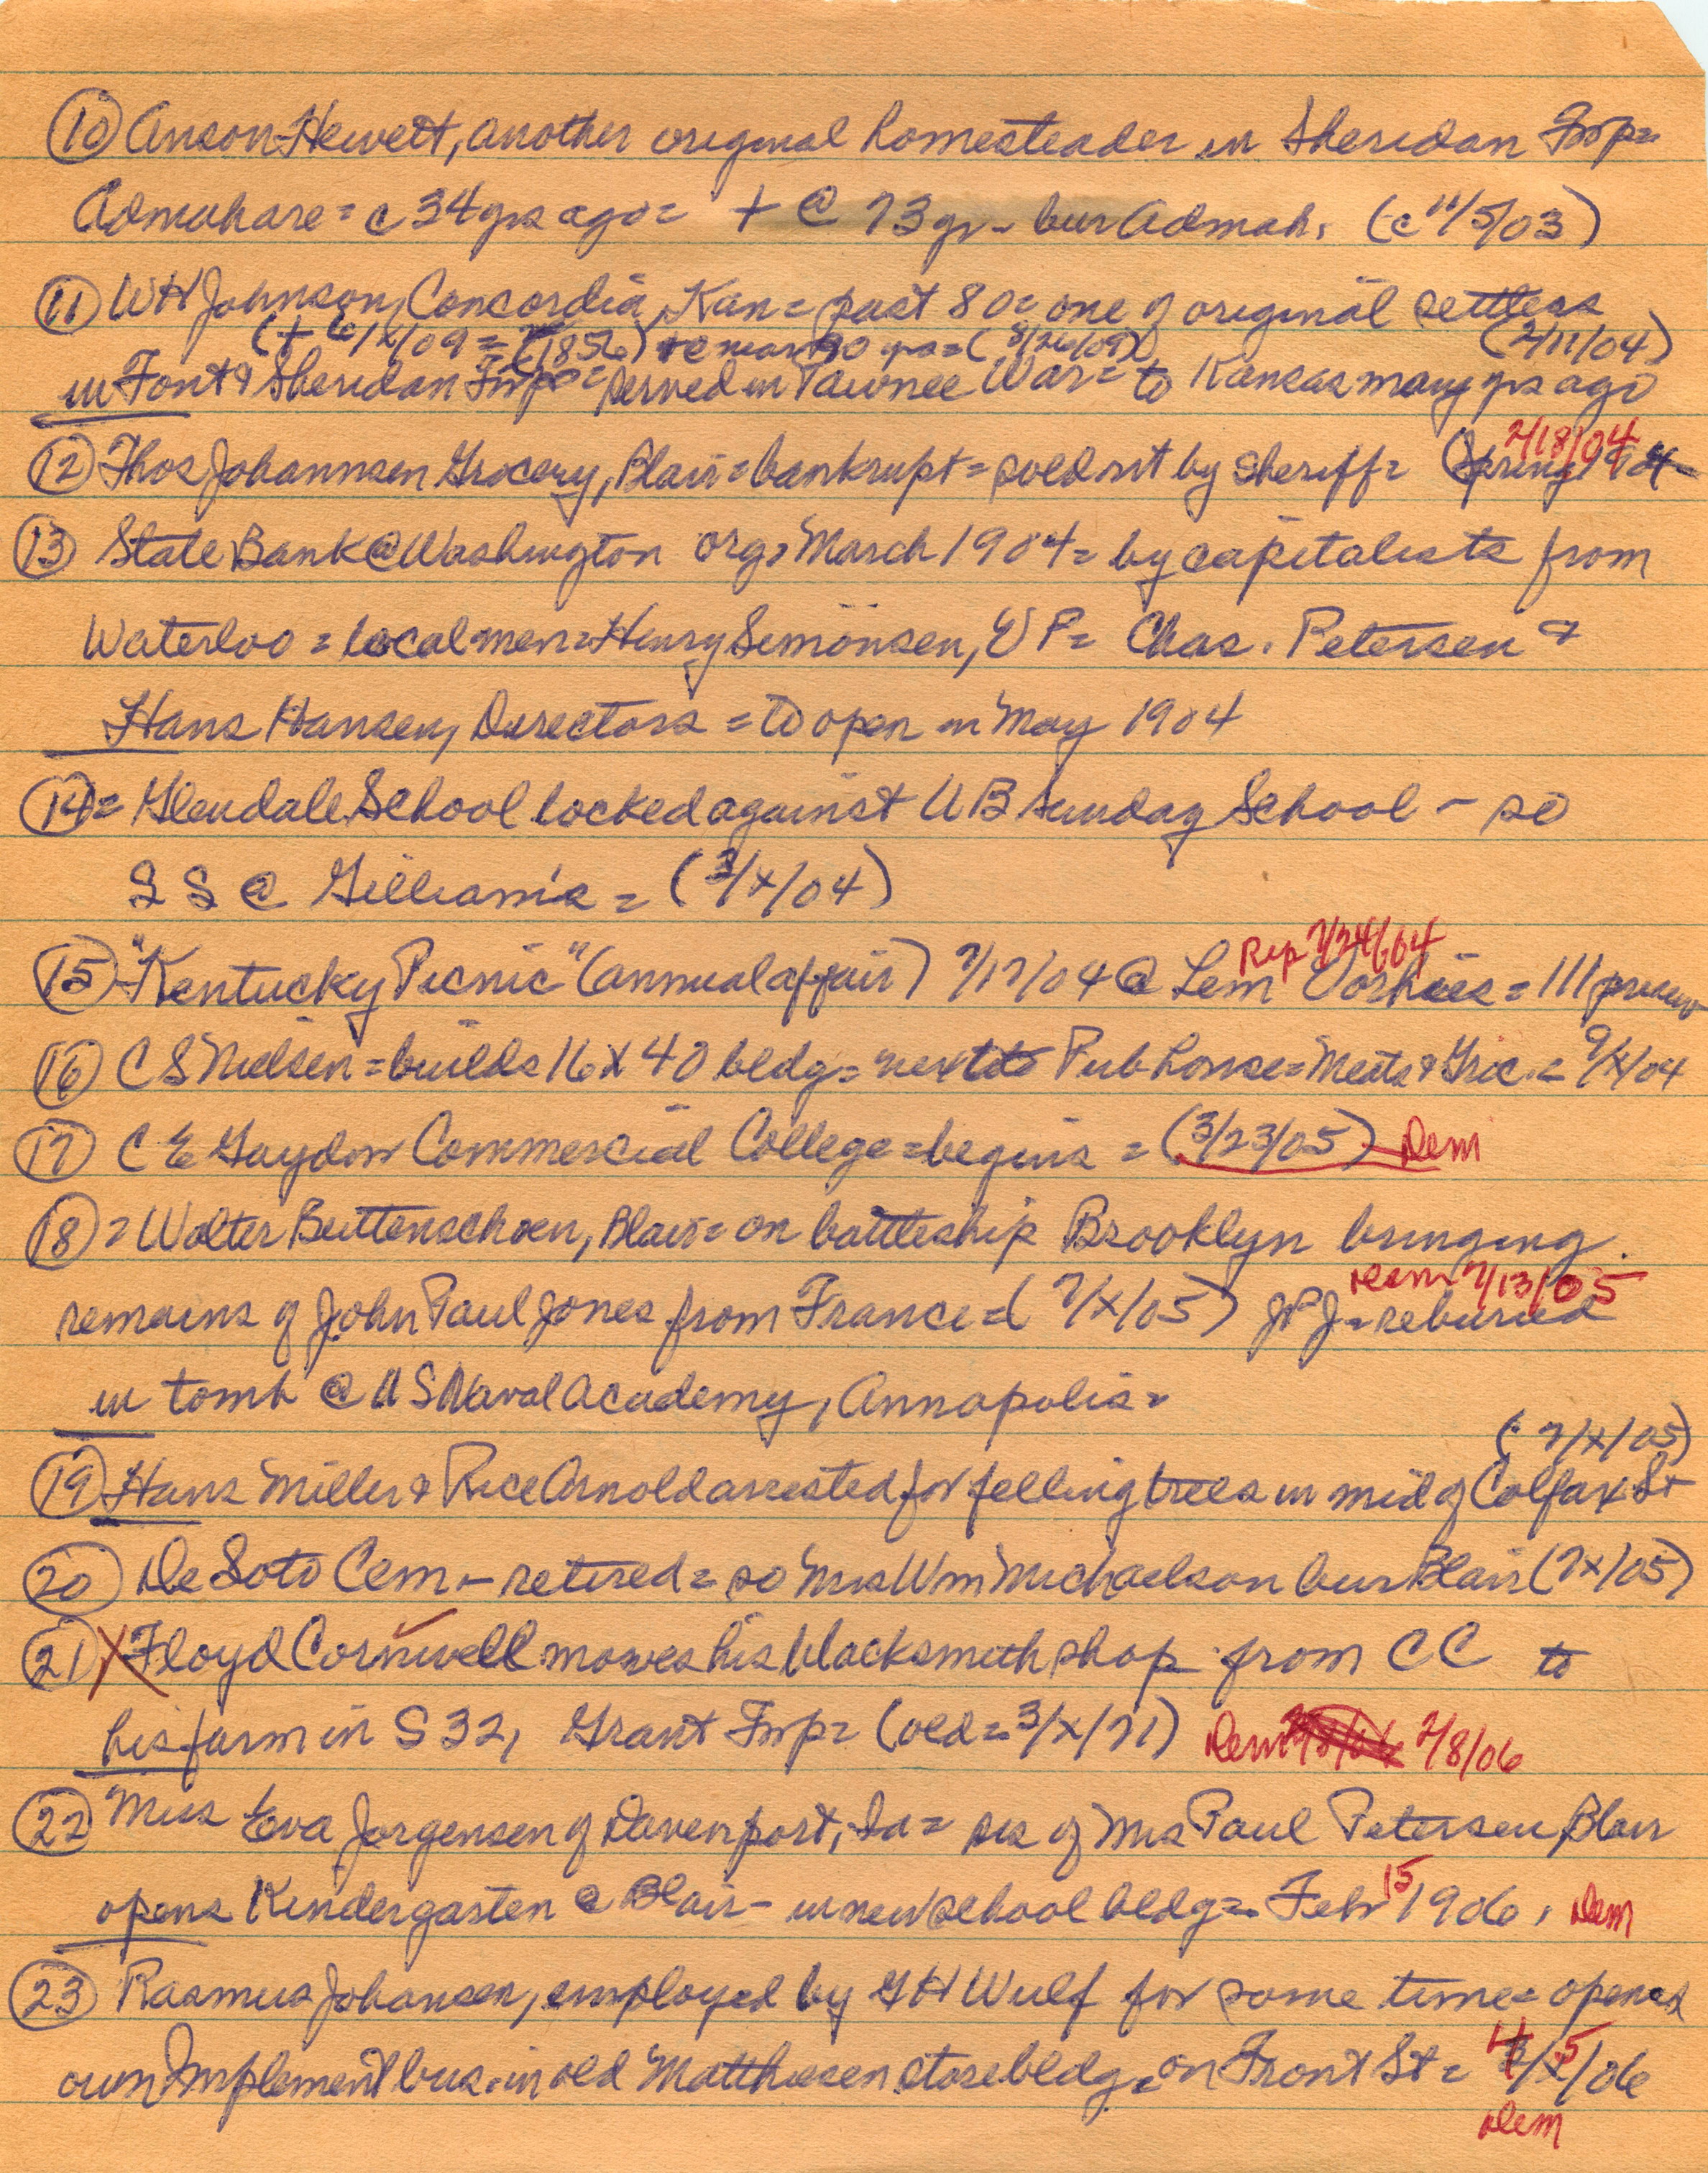 (10) Anson Hewett, another original homesteader in Sheridan Twp=
Admah are = c 34 yrs ago = + @ 73 yr - bur Admah. (c 11/5/03)
(11) WH Johnson, Concordia, Kan = past 80 = one of original settlers
(+ 6/x/09 = (1856) = (8/26/09) (2/11/04)
in Font & Sheridan Twp = served in Pawnee War = to Kansas many yrs ago
2/18/04
(12) Thos Johannsen Grocery, Blair = bankrupt = sold out by sheriff = (Spring 1904
(13) State Bank @ Washington org. March 1904 = by capitalists from
Waterloo = local men = Henry Simonsen, VP = Chas. Petersen &
Hans Hansen, Directors = to open in May 1904
(14) = Glendale School locked against UB Sunday School - so
S S @ Gilliam's = (3/x/04)
Rep 7/24/04
(15) "Kentucky Picnic" (annual affair) 7/17/04 @ Lem Vorhies = 111 present
(16) C S Nielsen = builds 16 x 40 bldg = next to Pub house = Meats & Groc. = 9/x/04
(17) C E Gaydou Commercial College = begins = (3/23/05) Dem
(18) = Walter Buttenschoen, Blair = on battleship Brooklyn bringing
Dem 7/13/05
remains of John Paul Jones from France = (7/x/05) JPJ = reburied
in tomb @ US Naval Academy, Annapolis =
(7/x/05)
(19) Hans Miller & Rice Arnold arrested for felling trees in mid of Colfax St
(20) De Soto Cem - retired = so Mrs Wm Michaelson bur Blair (7x/05)
(21) X Floyd Cornwell moves his blacksmith shop from CC to
his farm in S 32, Grant Twp = (old = 3/x/71) Dem 2/8/06
(22) Miss Eva Jorgensen of Davenport, Ia = sis of Mrs Paul Petersen, Blair
opens Kindergarten @ Blair - in new school bldg = Feb 15 1906, Dem
(23) Rasmus Johansen, employed by G H Wulf for some time = opened
own Implement bus. in old Matthiesen store bldg = on Front St = 4/5/06
Dem